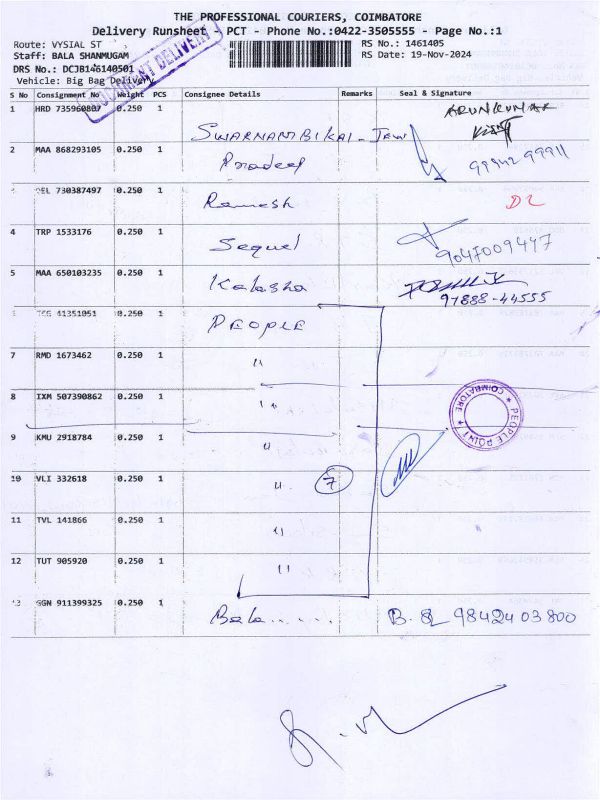 THE PROFESSIONAL COURIERS, COIMBATORE
Delivery Runsheet - PCT - Phone No.:0422-3505555 - Page No.:1
Route: VYSIAL ST
RS No.: 1461405
Staff: BALA SHANMUGAM
RS Date: 19-Nov-2024
DRS No.: DCJB146140501
Vehicle: Big Bag Delivery
DOCUMENT DELIVERY
S No Consignment No Weight PCS Consignee Details Remarks Seal & Signature
1 HRD 735960807 0.250 1 SWARNAMBIKAI - JEW ARUNKUMAR
2 MAA 868293105 0.250 1 Pradeep 99942 99911
DEL 730387497 0.250 1 Ramesh DL
4 TRP 1533176 0.250 1 Sequel 9047009447
5 MAA 650103235 0.250 1 Kalasha 97888-44555
41351051 0.250 1 PEOPLE
7 RMD 1673462 0.250 1 "
8 IXM 507390862 0.250 1 "
PEOPLE POINT * COIMBATORE *
9 KMU 2918784 0.250 1 "
10 VLI 332618 0.250 1 " 7
11 TVL 141866 0.250 1 "
12 TUT 905920 0.250 1 "
13 GGN 911399325 0.250 1 Bala...... B. 98424 03800